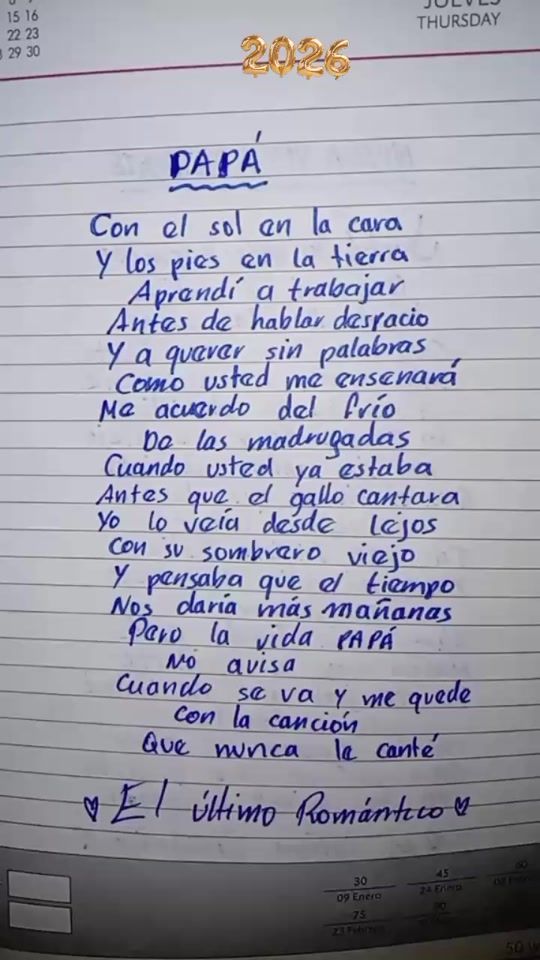 15 16
22 23
29 30
THURSDAY
2026
PAPÁ
Con el sol en la cara
Y los pies en la tierra
Aprendí a trabajar
Antes de hablar despacio
Y a querer sin palabras
Como usted me ensenará
Me acuerdo del frío
De las madrugadas
Cuando usted ya estaba
Antes que el gallo cantara
Yo lo veía desde lejos
Con su sombrero viejo
Y pensaba que el tiempo
Nos daría más mañanas
Pero la vida PAPÁ
No avisa
Cuando se va y me quede
Con la canción
Que nunca le canté
El último Romántico
30 45
09 Enero 24 Enero
75 90
23 Febrero
50